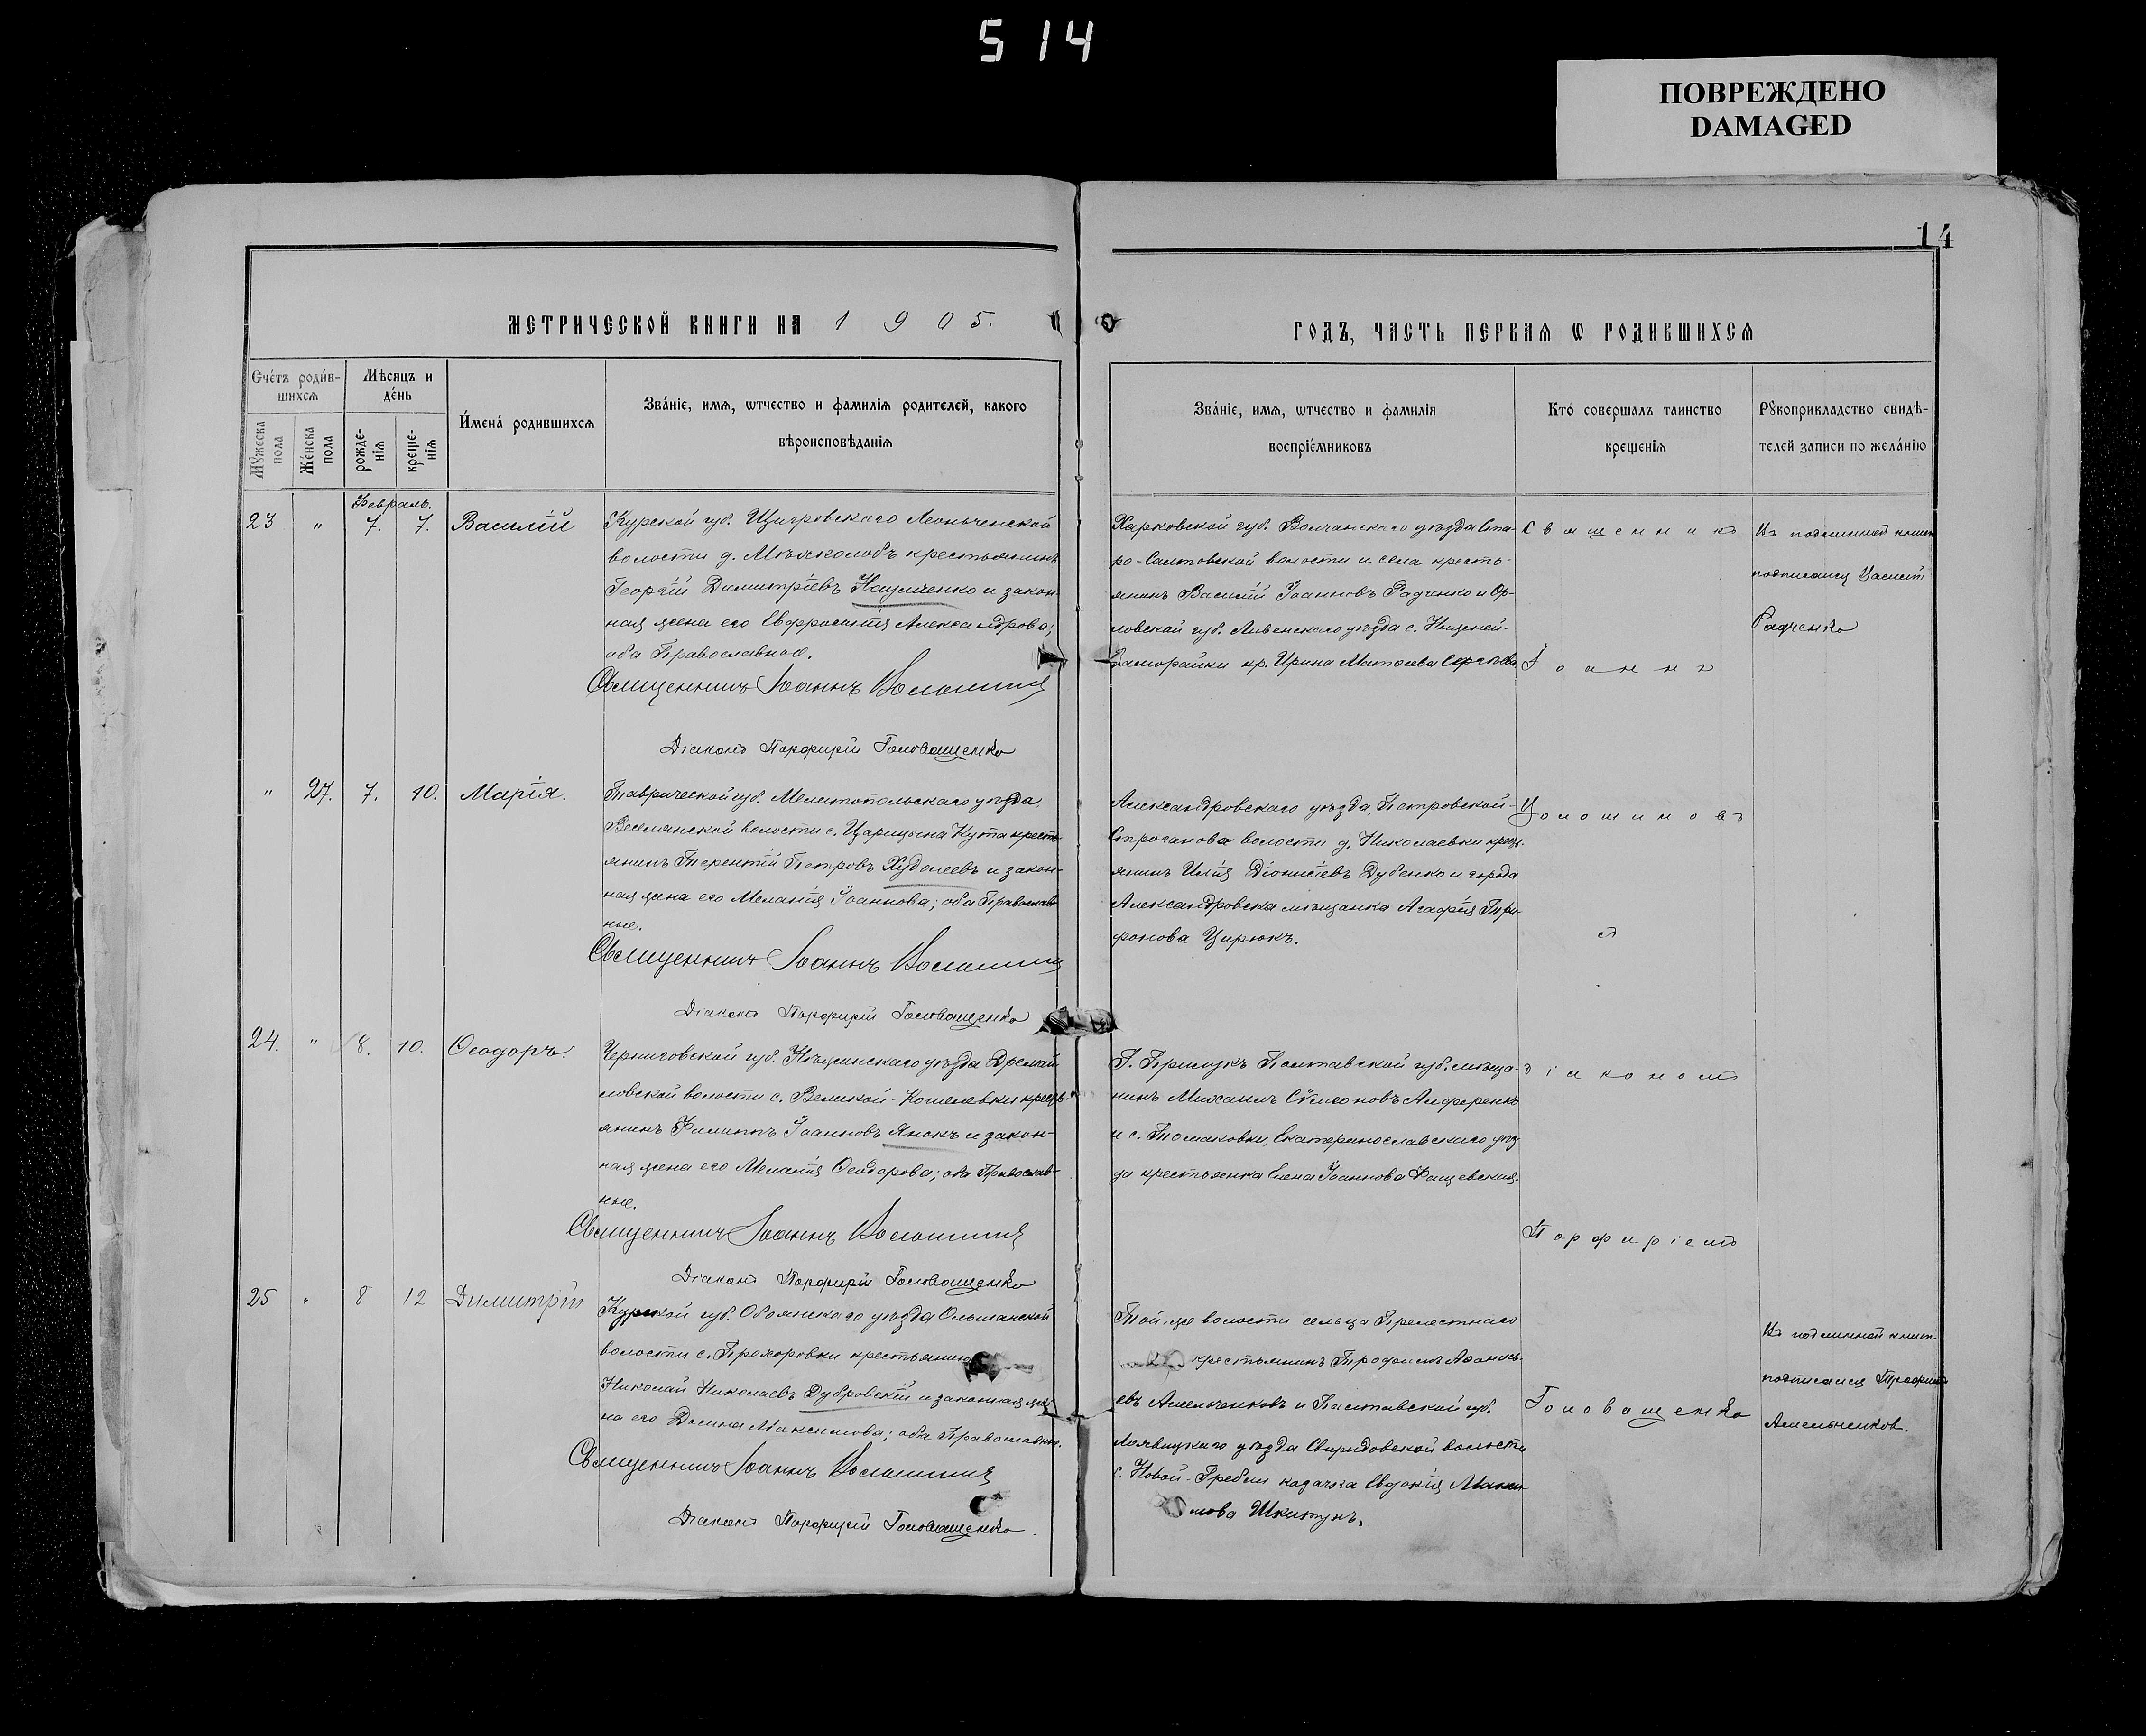 514
ПОВРЕЖДЕНО
DAMAGED
14
МЕТРИЧЕСКОЙ КНИГИ НА 1905.
ГОДЪ, ЧАСТЬ ПЕРВАЯ Ѡ РОДИВШИХСЯ
Счётъ родив-
шихся
Мужеска пола
Женска пола
Мѣсяцъ и
день
рожде-
нія
креще-
нія
Имена родившихся
Званіе, имя, ѡтчество и фамилія родителей, какого
вѣроисповѣданія
Званіе, имя, ѡтчество и фамилія
воспріемниковъ
Кто совершалъ таинство
крещенія
Рукоприкладство свидѣ-
телей записи по желанію
Февраль.
23 " 7. 7. Василій
Курской губ. Щигровскаго
волости д. крестьянинъ
Георгій Димитріевъ Науменко и закон-
ная жена его Евфросинія Александрова;
оба Православные.
Священникъ Іоаннъ Волошинъ
Діаконъ Порфирій Головащенко
Харковской губ. Волчанскаго уѣзда Ста-
ро-Салтовской волости и села кресть-
янинъ Василій Іоанновъ Радченко и Ор-
ловской губ. Ливенскаго уѣзда с.
кр. Ирина Матѳеева
Священникъ
Іоаннъ
Въ подлинной книгѣ
подписался Василій
Радченко
" 27. 7. 10. Марія.
Таврической губ. Мелитопольскаго уѣзда
Веселянской волости с. Царицына Кута кресть-
янинъ Терентій Петровъ Худолеевъ и закон-
ная жена его Меланія Іоаннова; оба Православ-
ные.
Священникъ Іоаннъ Волошинъ
Діаконъ Порфирій Головащенко
Александровскаго уѣзда, Петровской-
Строганова волости д. Николаевки крест.
янинъ Илія Діонисіевъ Дубенко и города
Александровска мѣщанка Агафія Три-
фонова Цирюкъ.
съ
24. " 8. 10. Ѳеодоръ.
Черниговской губ. Нѣжинскаго уѣзда Дремай-
ловской волости с. Великой-Кошелевки кресть-
янинъ Филиппъ Іоанновъ Янокъ и закон-
ная жена его Меланія Ѳеодорова; оба Православ-
ные.
Священникъ Іоаннъ Волошинъ
Діаконъ Порфирій Головащенко
Г. Прилукъ Полтавской губ. мѣща-
нинъ Михаилъ Сѵмеоновъ Алференко
и с. Томаковки, Екатеринославскаго уѣз-
да крестьянка Елена Іоаннова
діакономъ
Порфиріемъ
25 " 8 12 Димитрій
Курской губ. Обоянскаго уѣзда Ольшанской
волости с. Прохоровки крестьянинъ
Николай Николаевъ Дубровскій и законная же-
на его Домна Максимова; оба Православные.
Священникъ Іоаннъ Волошинъ
Діаконъ Порфирій Головащенко.
Той-же волости сельца Прелестнаго
крестьянинъ Трофимъ Аѳанась-
евъ Амельченковъ и Полтавской губ.
Лохвицкаго уѣзда Свиридовской волости
с. Новой-Гребли казачка Евдокія Макси-
мова Шкитунъ.
Головащенко
Въ подлинной книгѣ
подписался Трофимъ
Амельченков.